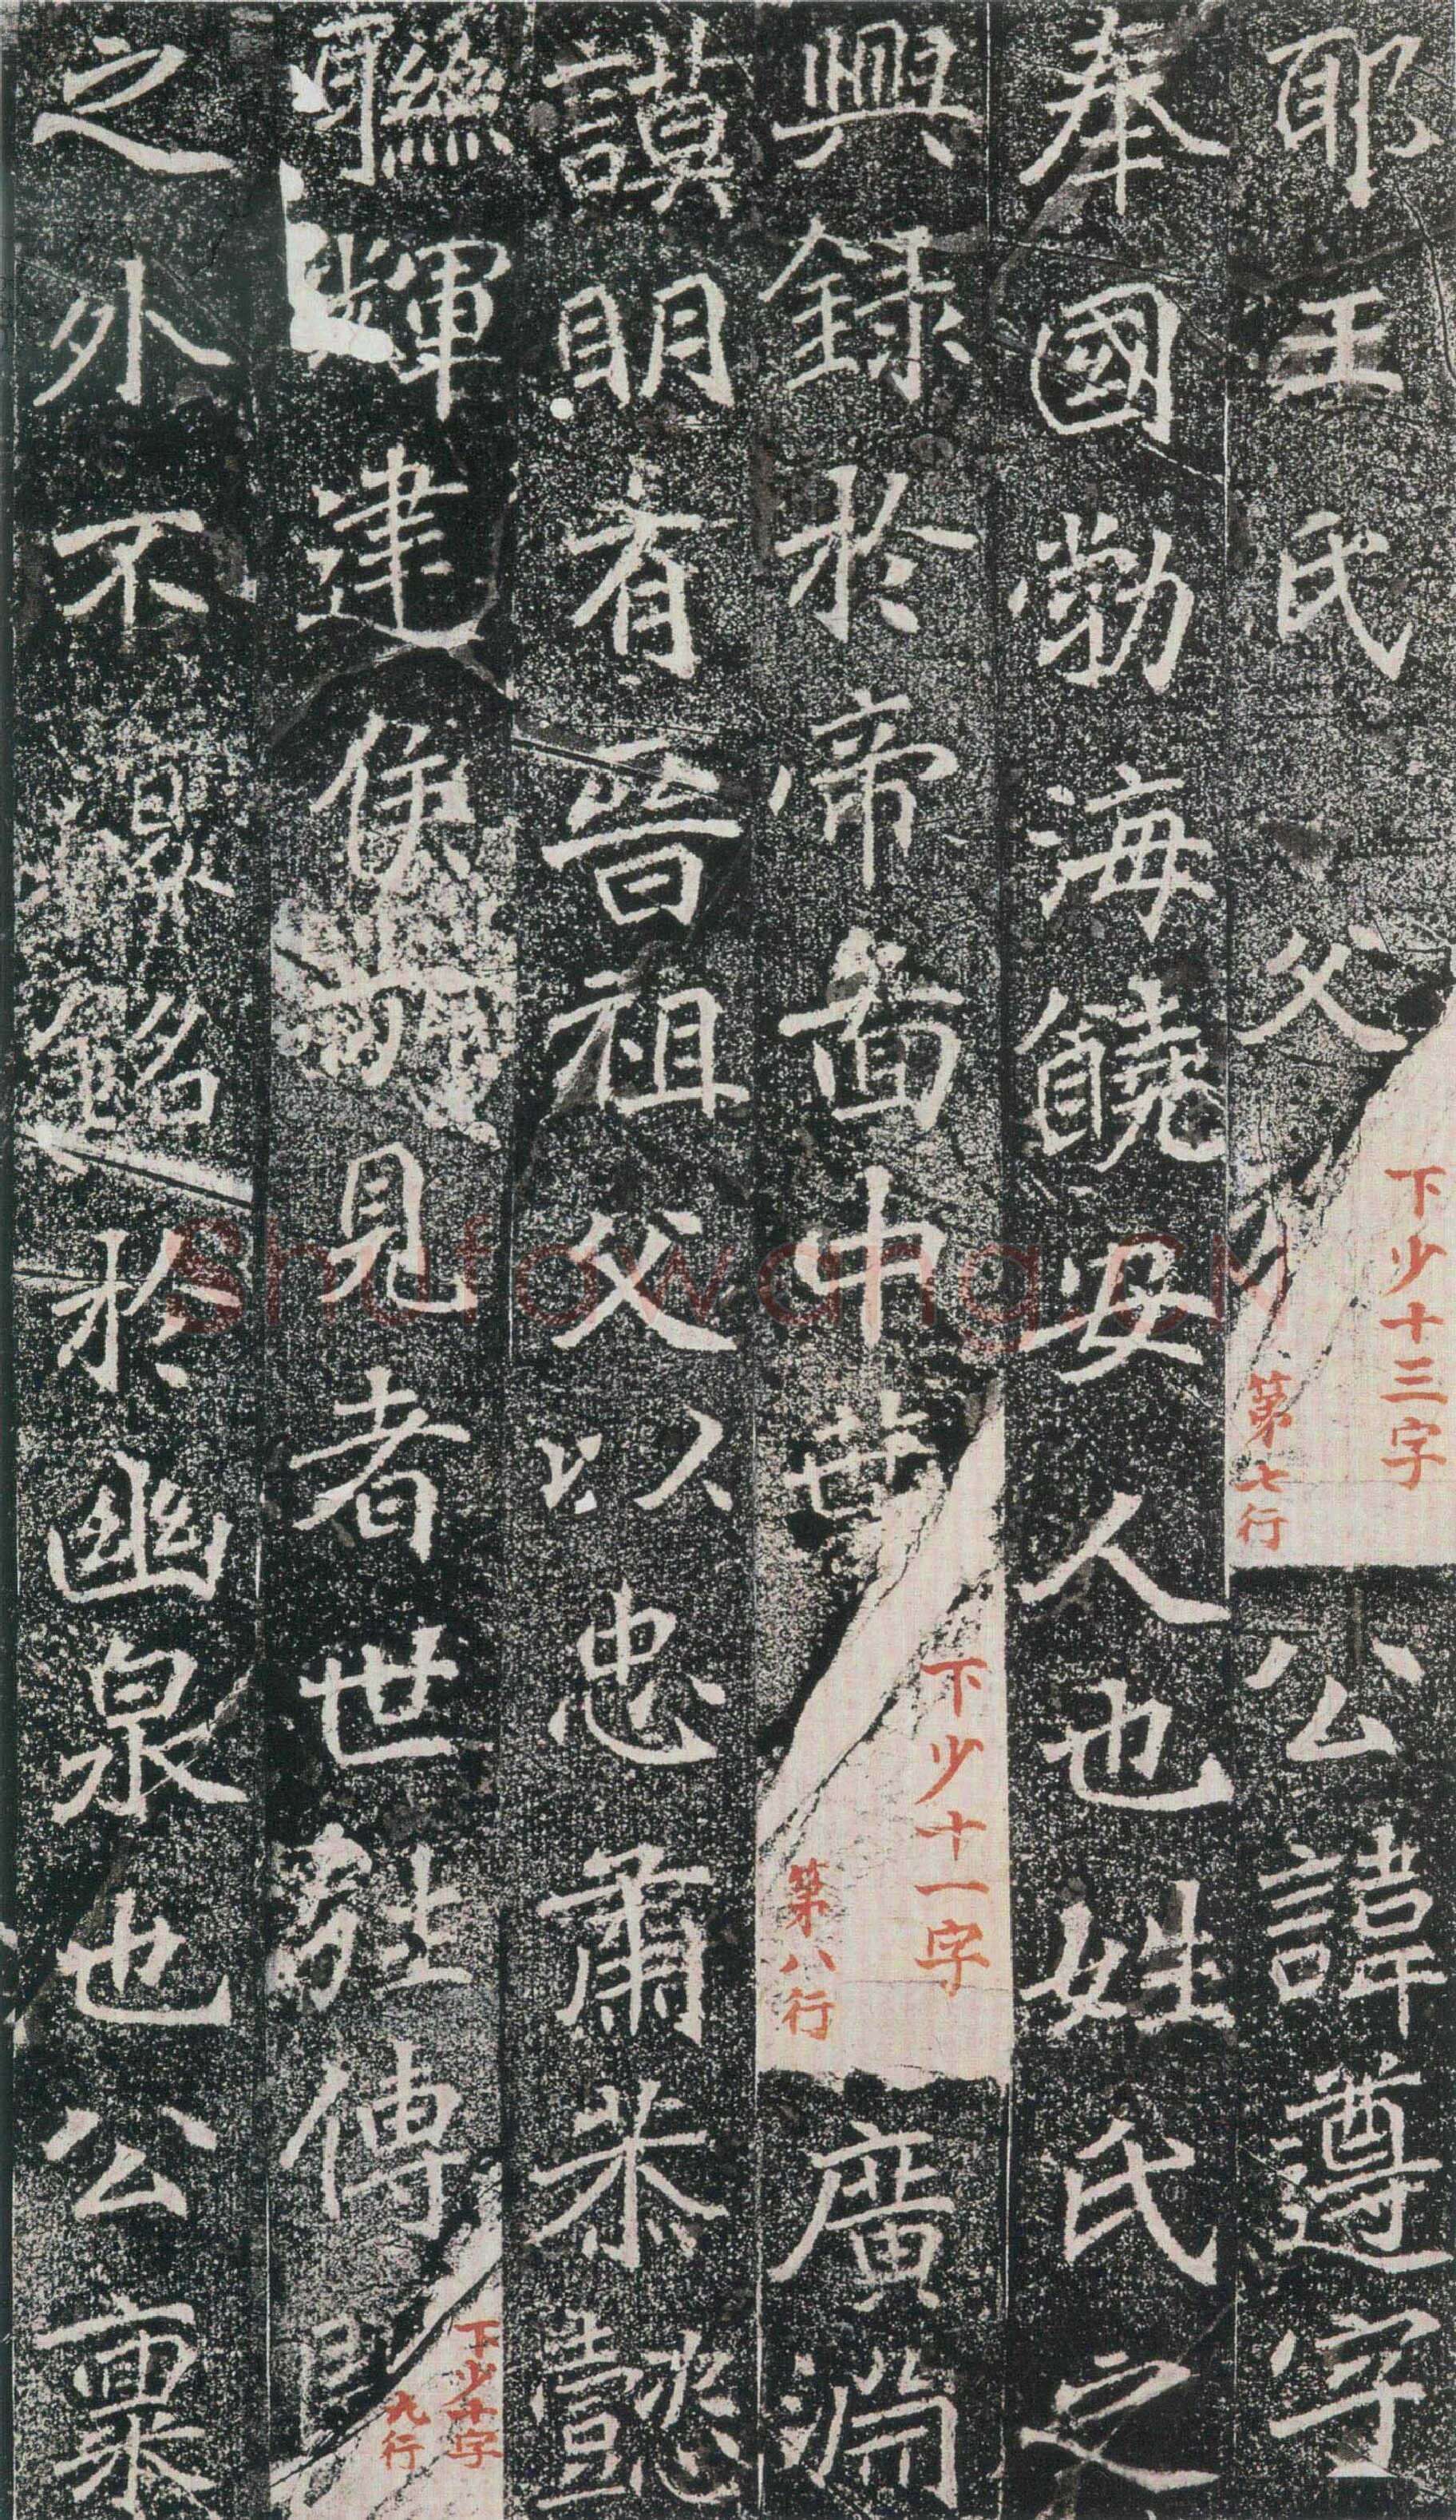 耶王氏 父
下少十三字
第七行
公諱遵字
奉國勃海饒安人也姓氏之
興録於帝啚中葉
下少十一字
第八行
廣淵
謨明有晉祖父以忠肅恭懿
聯輝建侯 見者世 傅
下少十字
九行
之外不 銘於幽泉也公稟
Shufawang.CN